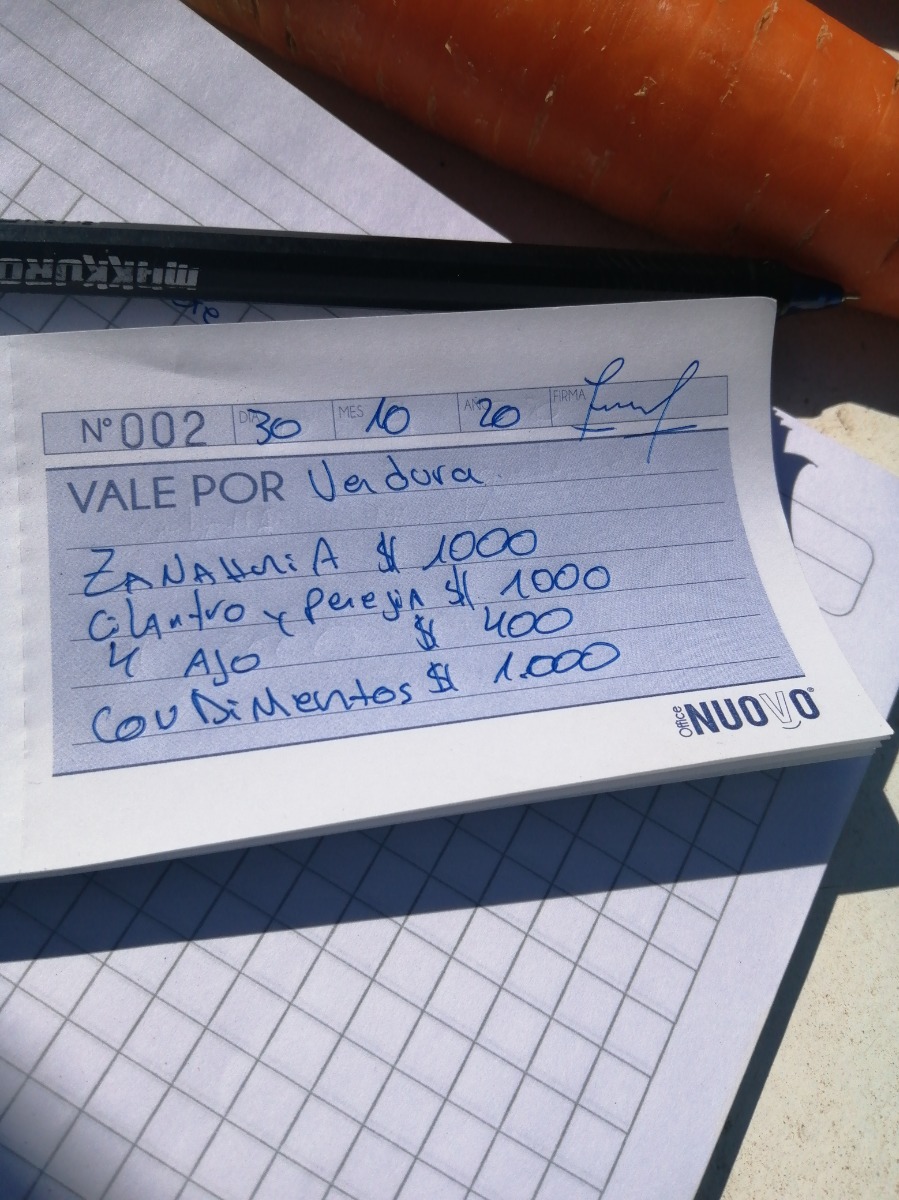 re
Nº 002 DIA 30 MES 10 AÑO 20 FIRMA
VALE POR Verdura
ZANAHoriA $ 1000
Cilantro y perejin $ 1000
4 AJO $ 400
CONDiMentos $ 1.000
Office NUOVO®